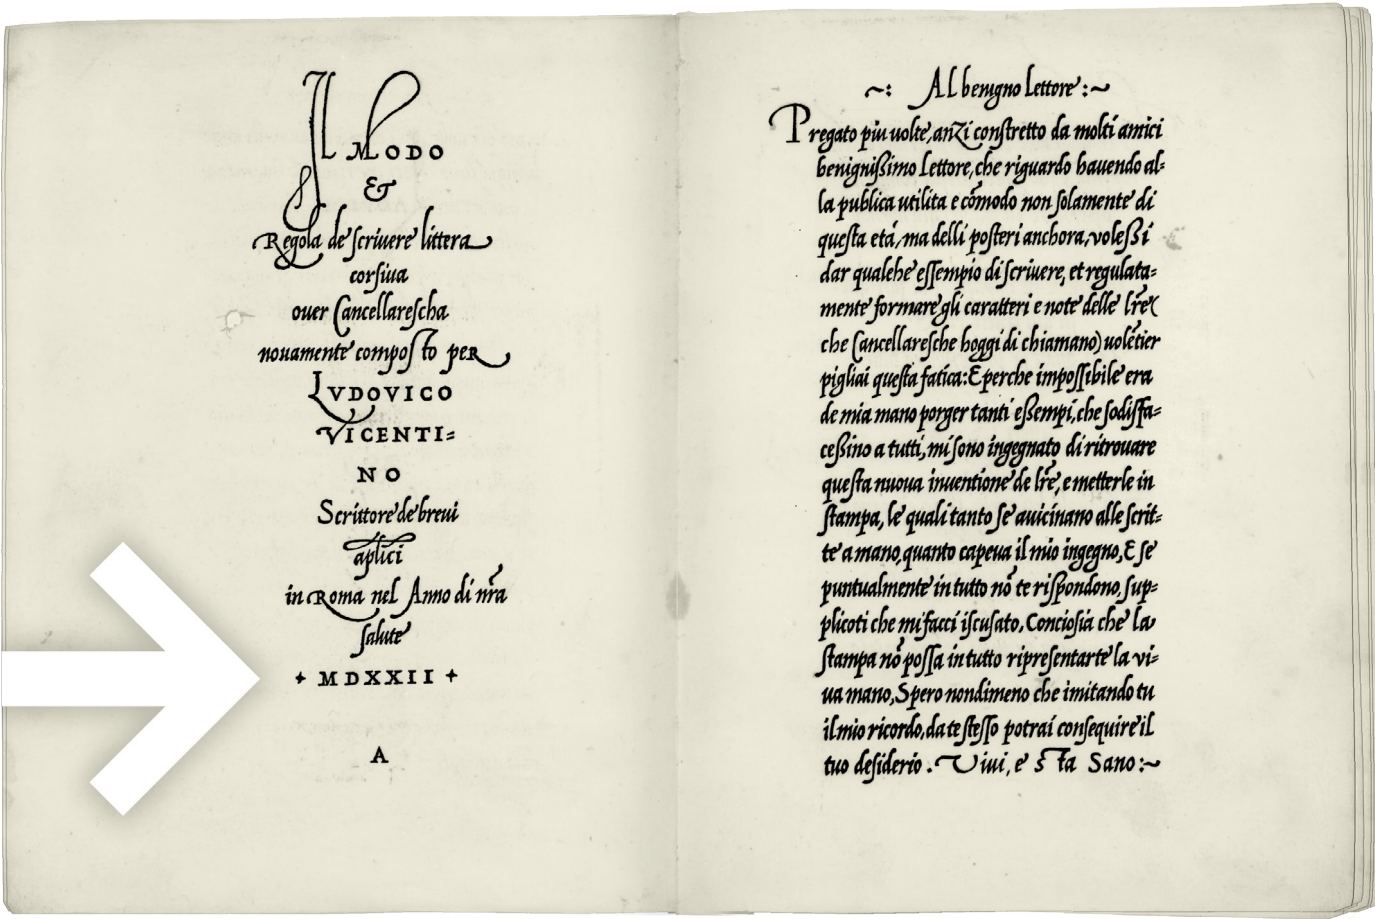 Il Modo
&
Regola de scriuere littera
corsiua
ouer Cancellarescha
nouamente composto per
LVDOVICO
VICENTI=
NO
Scrittore de breui
aplici
in Roma nel Anno di nr̃a
salute
+ MDXXII +
A
~: Al benigno lettore :~
Pregato piu uolte, anzi constretto da molti amici
benignißimo lettore, che riguardo hauendo al=
la publica utilita e cõmodo non solamente di
questa etá, ma delli posteri anchora, voleßi
dar qualche essempio di scriuere, et regulata=
mente formare gli caratteri e note delle lr̃e (
che Cancellaresche hoggi di chiamano) uolẽtier
pigliai questa fatica: E perche impossibile era
de mia mano porger tanti eßempi, che sodisfa=
ceßino a tutti, mi sono ingegnato di ritrouare
questa nuoua inuentione de lr̃e, e metterle in
stampa, le quali tanto se auicinano alle scrit=
te a mano, quanto capeua il mio ingegno, E se
puntualmente in tutto nõ te rispondono, sup=
plicoti che mi facci iscusato, Conciosia che la
stampa nõ possa in tutto ripresentarte la vi=
ua mano, Spero nondimeno che imitando tu
il mio ricordo, da te stesso potrai consequire il
tuo desiderio. Uiui, e sta Sano :~